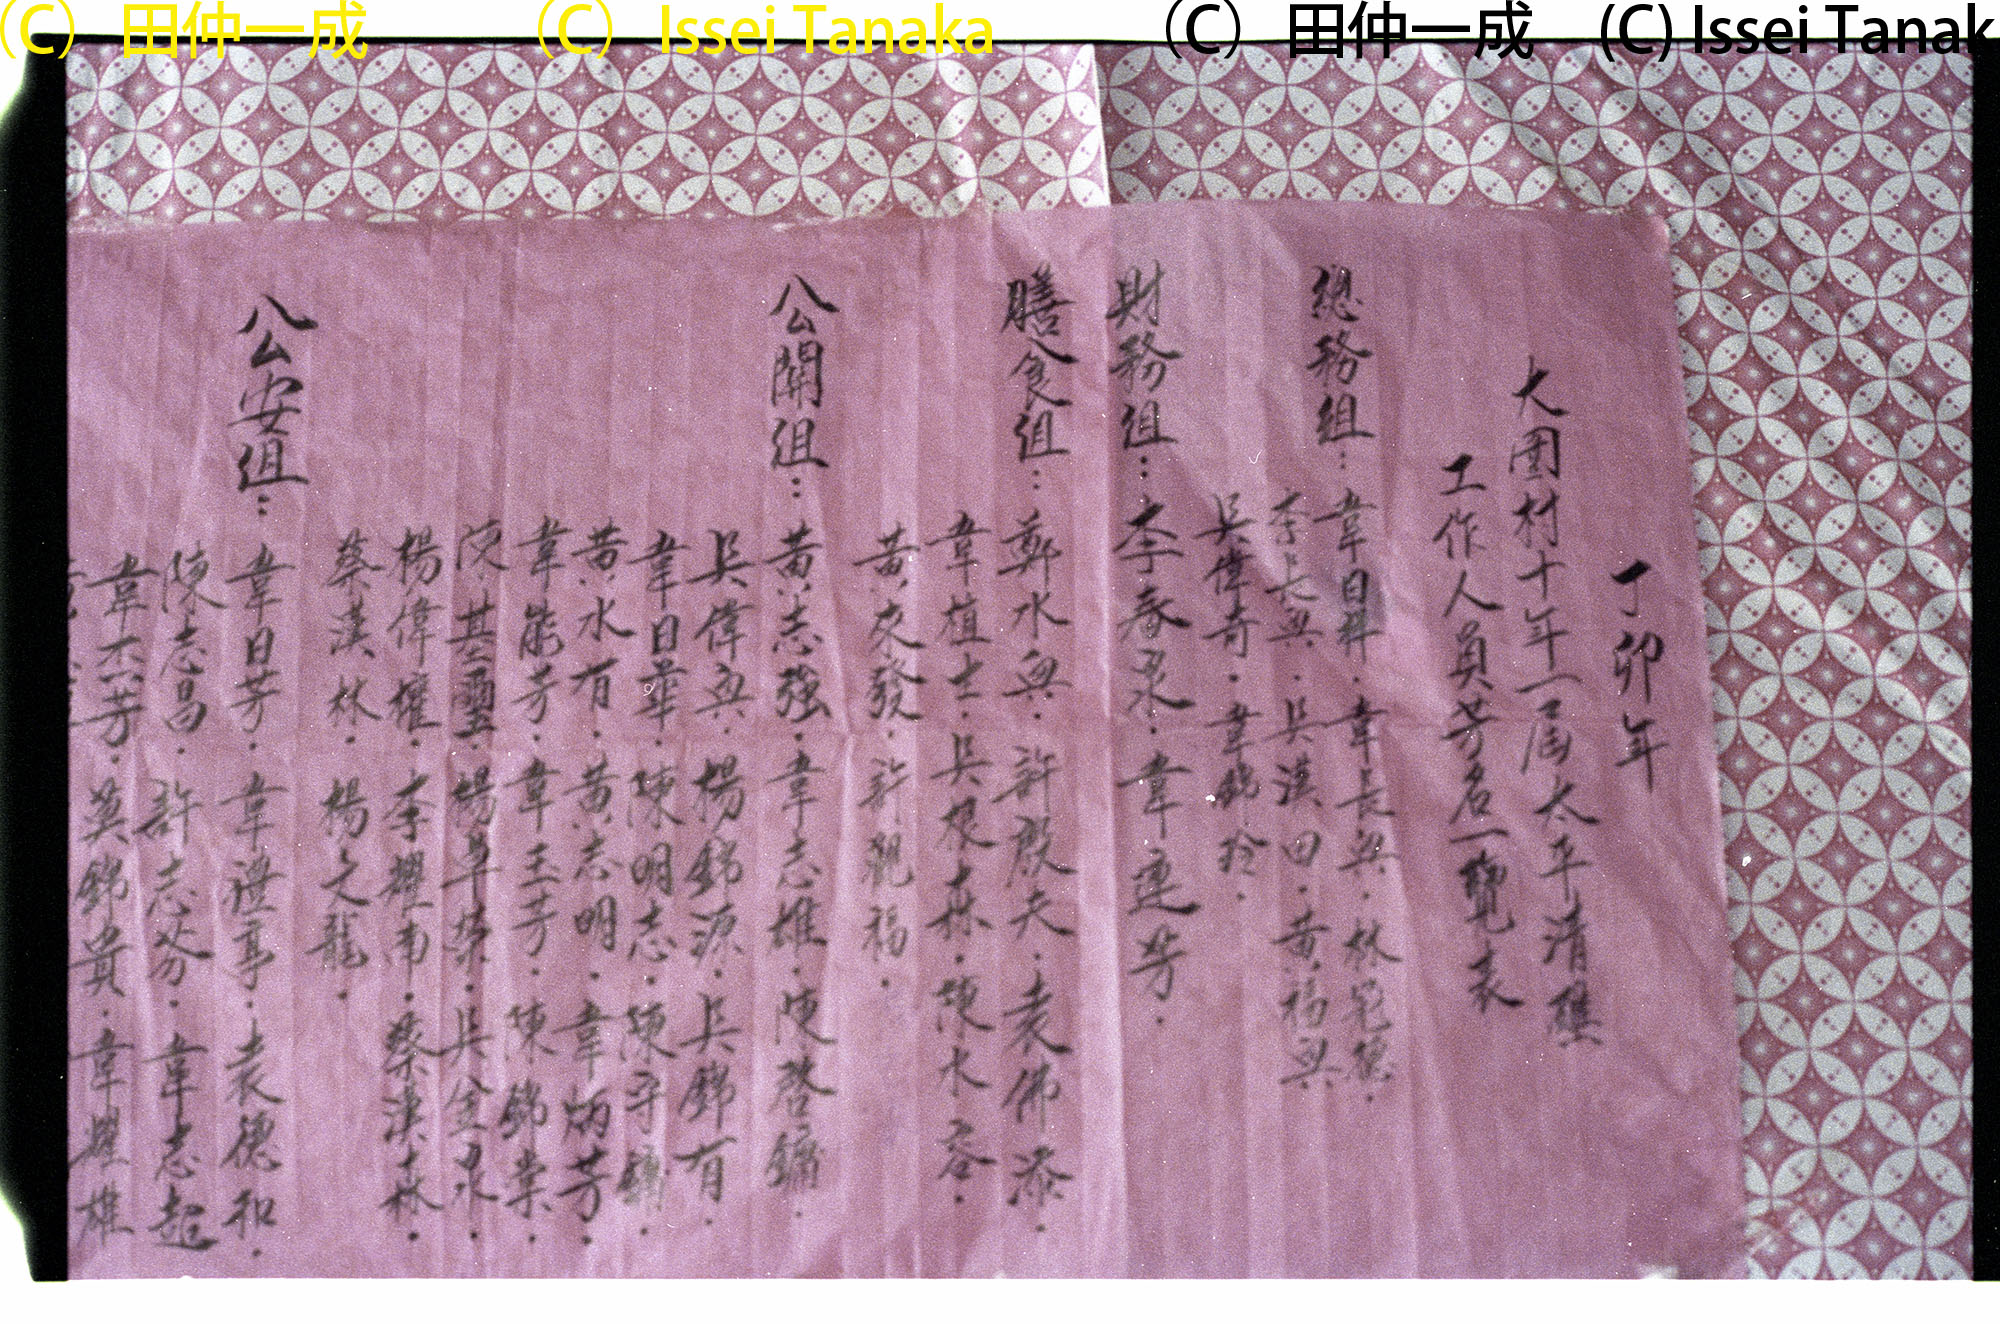 (C) 田仲一成 (C) Issei Tanaka (C) 田仲一成 (C) Issei Tanak
丁卯年
大圍村十年一屆太平清醮
工作人員芳名一覽表
總務組：韋日昇．韋長興．林範德．
李長興．吳漢田．黃福興
吳偉奇．韋錦玲．
財務組：李春泉．韋連芳．
膳食組：鄭水興．許殷夫．袁佛添．
韋植士．吳根森．陳水容．
黃來發．許觀福．
公關組：黃志強．韋志雄．陳啓鏞．
吳偉興．楊錦源．吳錦有．
韋日華．陳明志．陳平
黃水有．黃志明．韋炳芳．
韋能芳．韋玉芳．陳錦棠．
陳基璽．楊卓榮．吳金水．
楊偉權．李耀南．蔡漢森．
蔡漢林．楊文龍．
公安組：韋日芳．韋禮亭．袁德和．
陳志昌．許志芬．韋志超
韋杰芳．莫錦貴．韋耀雄